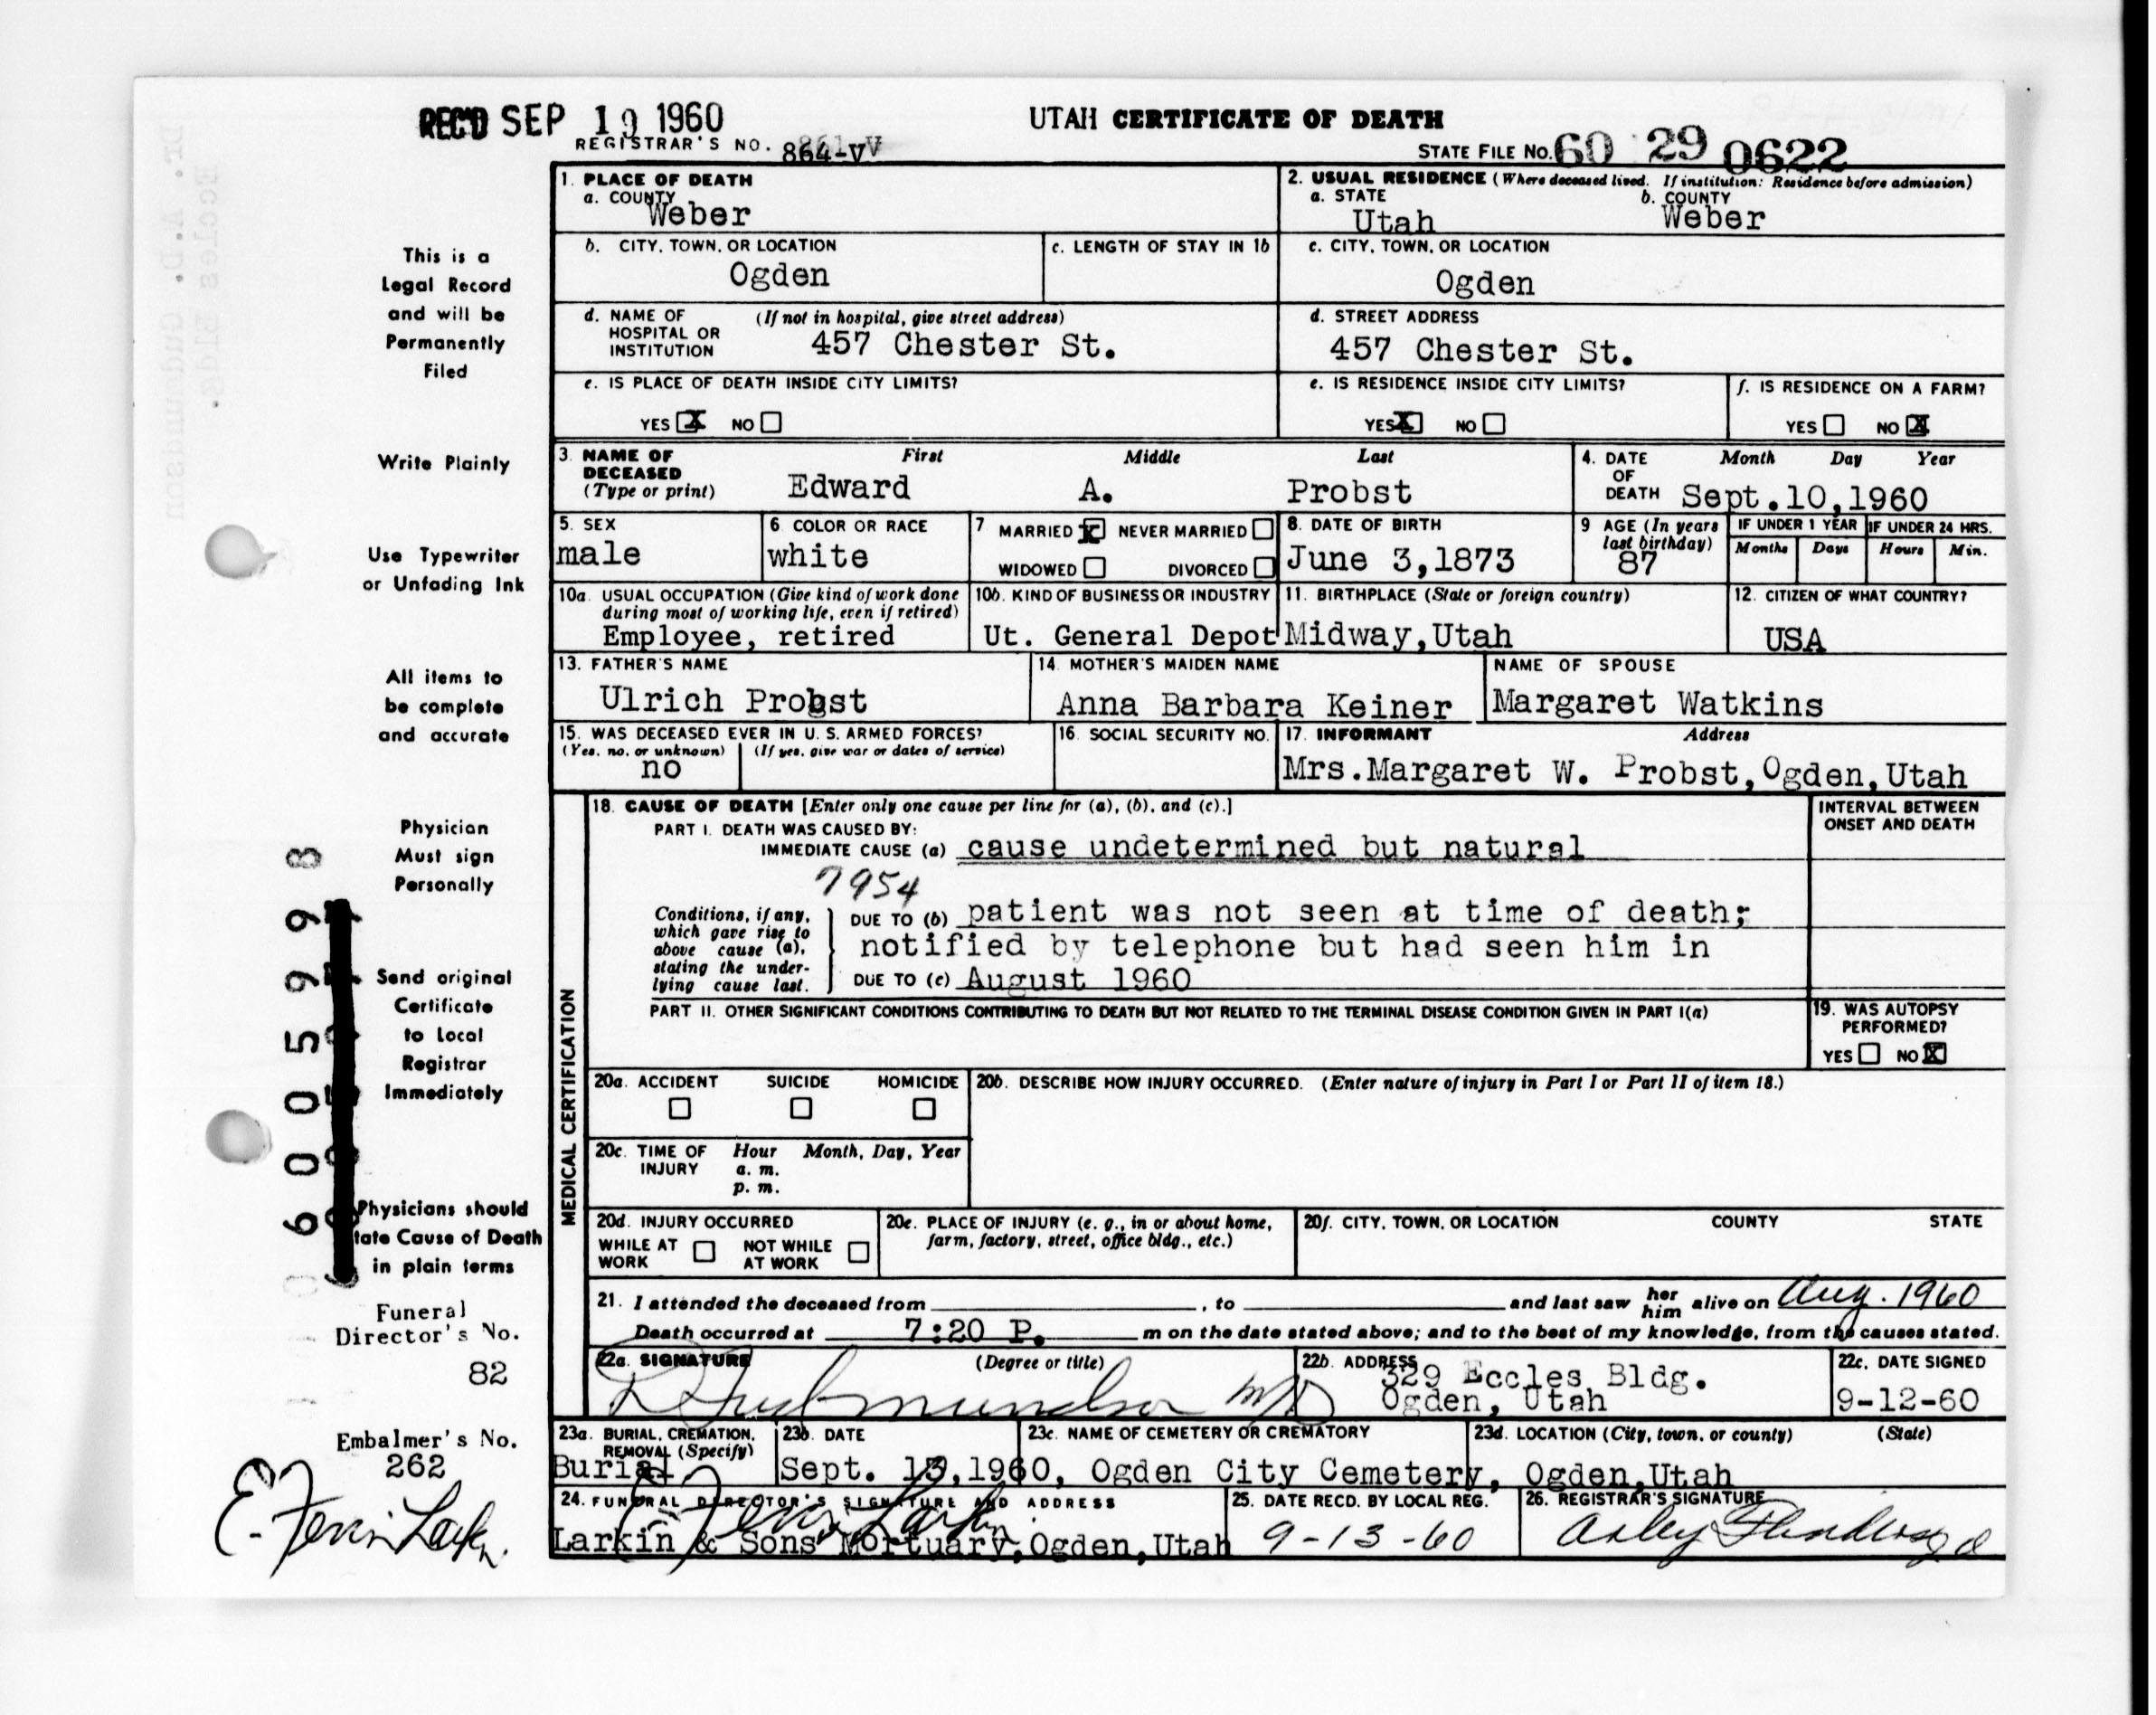 REC'D SEP 19 1960
UTAH CERTIFICATE OF DEATH
REGISTRAR'S NO. 864-V
STATE FILE NO. 60 29 0622
This is a
Legal Record
and will be
Permanently
Filed
Write Plainly
Use Typewriter
or Unfading Ink
All items to
be complete
and accurate
Physician
Must sign
Personally
Send original
Certificate
to Local
Registrar
Immediately
Physicians should
tate Cause of Death
in plain terms
Funeral
Director's No.
82
Embalmer's No.
262
E. Ferrin Larkin
6 0 0 5 9 9 8
1. PLACE OF DEATH
a. COUNTY
Weber
2. USUAL RESIDENCE (Where deceased lived. If institution: Residence before admission)
a. STATE b. COUNTY
Utah Weber
b. CITY, TOWN, OR LOCATION
Ogden
c. LENGTH OF STAY IN 1b
c. CITY, TOWN, OR LOCATION
Ogden
d. NAME OF HOSPITAL OR INSTITUTION (If not in hospital, give street address)
457 Chester St.
d. STREET ADDRESS
457 Chester St.
e. IS PLACE OF DEATH INSIDE CITY LIMITS?
YES X NO
e. IS RESIDENCE INSIDE CITY LIMITS?
YES X NO
f. IS RESIDENCE ON A FARM?
YES NO X
3. NAME OF DECEASED (Type or print) First Middle Last
Edward A. Probst
4. DATE OF DEATH Month Day Year
Sept.10,1960
5. SEX
male
6 COLOR OR RACE
white
7 MARRIED X NEVER MARRIED
WIDOWED DIVORCED
8. DATE OF BIRTH
June 3,1873
9 AGE (In years last birthday)
87
IF UNDER 1 YEAR IF UNDER 24 HRS.
Months Days Hours Min.
10a. USUAL OCCUPATION (Give kind of work done during most of working life, even if retired)
Employee, retired
10b. KIND OF BUSINESS OR INDUSTRY
Ut. General Depot
11. BIRTHPLACE (State or foreign country)
Midway,Utah
12. CITIZEN OF WHAT COUNTRY?
USA
13. FATHER'S NAME
Ulrich Probst
14. MOTHER'S MAIDEN NAME
Anna Barbara Keiner
NAME OF SPOUSE
Margaret Watkins
15. WAS DECEASED EVER IN U. S. ARMED FORCES?
(Yes, no, or unknown) (If yes, give war or dates of service)
no
16. SOCIAL SECURITY NO.
17. INFORMANT Address
Mrs.Margaret W. Probst,Ogden,Utah
MEDICAL CERTIFICATION
18. CAUSE OF DEATH [Enter only one cause per line for (a), (b), and (c).]
INTERVAL BETWEEN ONSET AND DEATH
PART I. DEATH WAS CAUSED BY:
IMMEDIATE CAUSE (a) cause undetermined but natural
7954
Conditions, if any, which gave rise to above cause (a), stating the underlying cause last.
DUE TO (b) patient was not seen at time of death;
notified by telephone but had seen him in
DUE TO (c) August 1960
PART II. OTHER SIGNIFICANT CONDITIONS CONTRIBUTING TO DEATH BUT NOT RELATED TO THE TERMINAL DISEASE CONDITION GIVEN IN PART I(a)
19. WAS AUTOPSY PERFORMED?
YES NO X
20a. ACCIDENT SUICIDE HOMICIDE
20b. DESCRIBE HOW INJURY OCCURRED. (Enter nature of injury in Part I or Part II of item 18.)
20c. TIME OF INJURY Hour Month, Day, Year
a. m.
p. m.
20d. INJURY OCCURRED
WHILE AT WORK NOT WHILE AT WORK
20e. PLACE OF INJURY (e. g., in or about home, farm, factory, street, office bldg., etc.)
20f. CITY, TOWN, OR LOCATION COUNTY STATE
21. I attended the deceased from , to and last saw her him alive on Aug. 1960
Death occurred at 7:20 P. m on the date stated above; and to the best of my knowledge, from the causes stated.
22a. SIGNATURE (Degree or title)
Gudmundson MD
22b. ADDRESS
329 Eccles Bldg.
Ogden, Utah
22c. DATE SIGNED
9-12-60
23a. BURIAL, CREMATION, REMOVAL (Specify)
Burial
23b. DATE
Sept. 13,1960,
23c. NAME OF CEMETERY OR CREMATORY
Ogden City Cemetery,
23d. LOCATION (City, town, or county) (State)
Ogden,Utah
24. FUNERAL DIRECTOR'S SIGNATURE AND ADDRESS
E. Ferrin Larkin
Larkin & Sons Mortuary,Ogden,Utah
25. DATE RECD. BY LOCAL REG.
9-13-60
26. REGISTRAR'S SIGNATURE